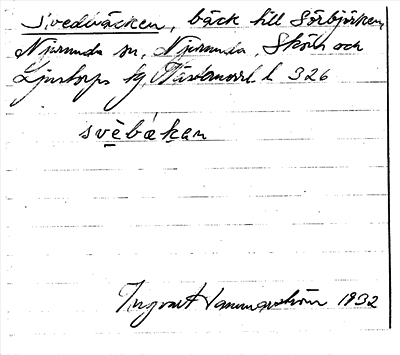 Svedbäcken, bäck till Sörbjörken,
Njurunda sn, Njurunda, Sköns och
Ljustorps tg, Västernorrl. l. 326
svèbäkan
Ingvart Hammarström 1932